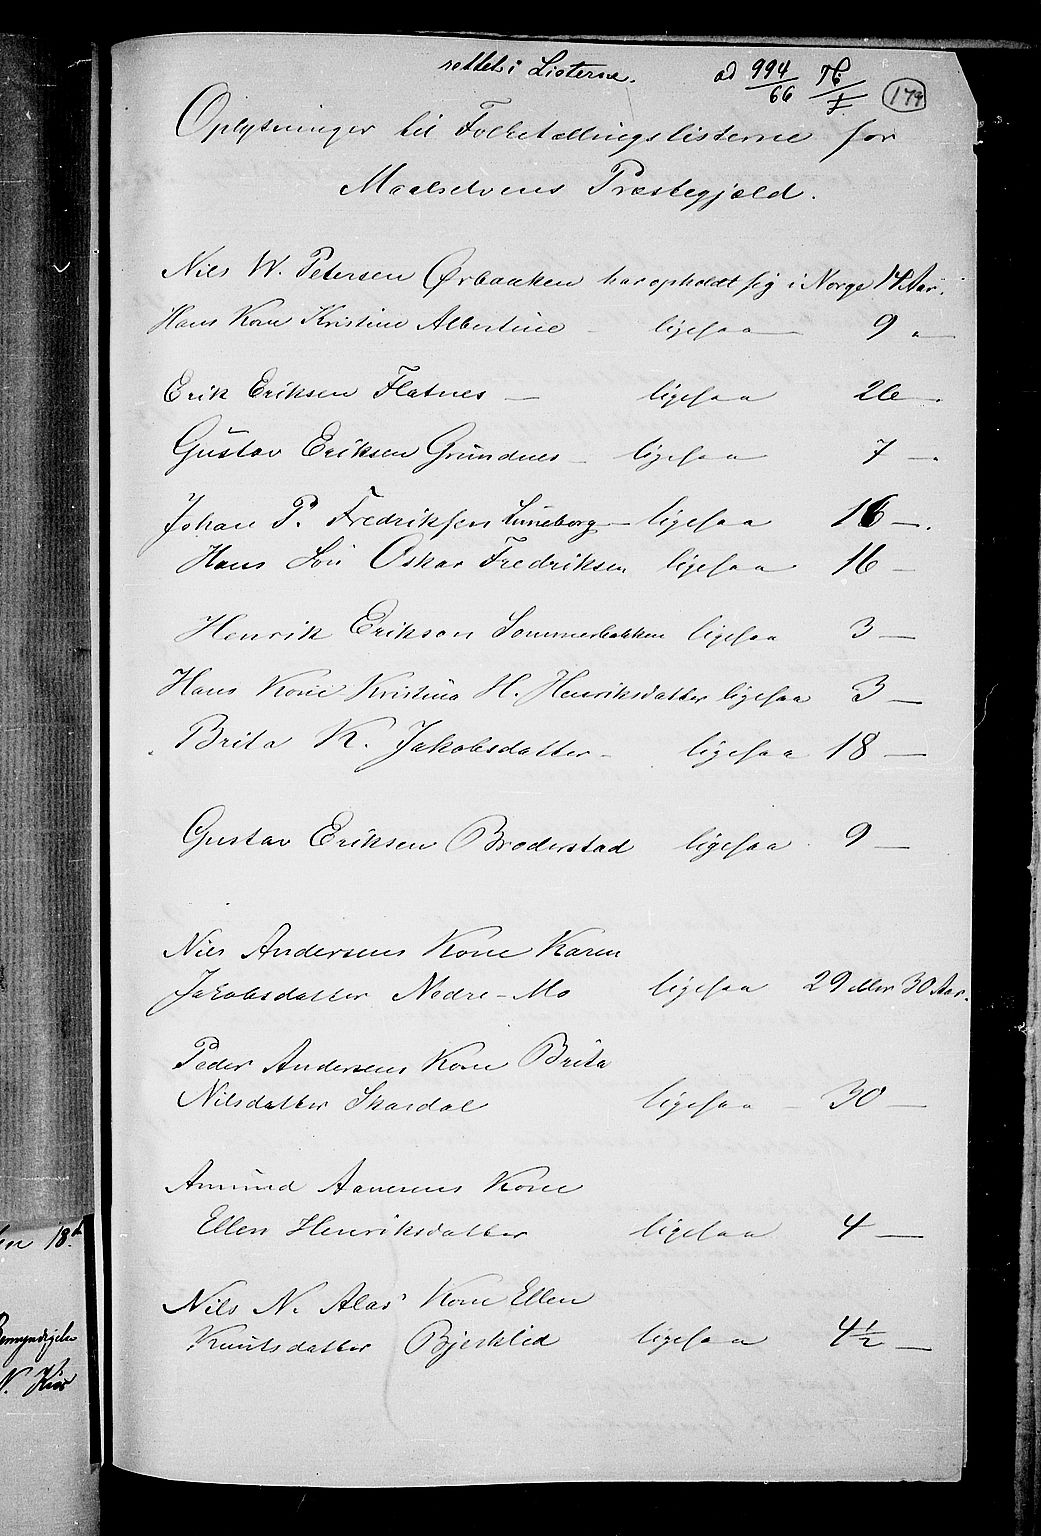 rettet i Listerne. ad 994/66 76/I 179
Oplysninger til Folketællingslisterne for
Maalselvens Præstegjæld.
Nils W. Petersen Ørbakken har opholdt sig i Norge 14 Aar.
Hans Kone Kristine Albertine – ligesaa — 9 „ —
Erik Eriksen Flatnes — ligesaa 26 —.
Gustav Eriksen Grundnes – ligesaa 7 —.
Johan P. Fredriksen Luneborg – ligesaa 16 —.
Hans Søn Oskar Fredriksen ligesaa 16 –
Henrik Erikson Sommerbakken ligesaa 3 —
Hans Kone Kristina H. Henriksdatter ligesaa 3 —
Brita K. Jakobsdatter – ligesaa 18 —
Gustav Eriksen Broderstad ligesaa 9 —
Nils Andersens Kone Karen
Jakobsdatter Nedre-Mo ligesaa 29 eller 30 Aar.
Peder Andersens Kone Brita
Nilsdatter Skardal ligesaa – 30 —
Amund Aanesens Kone
Ellen Henriksdatter ligesaa 4 —
Nils N. Alas' Kone Ellen
Knutsdatter Bjerklid ligesaa 4½ —
18
Bemyndigelse
N. Kiær